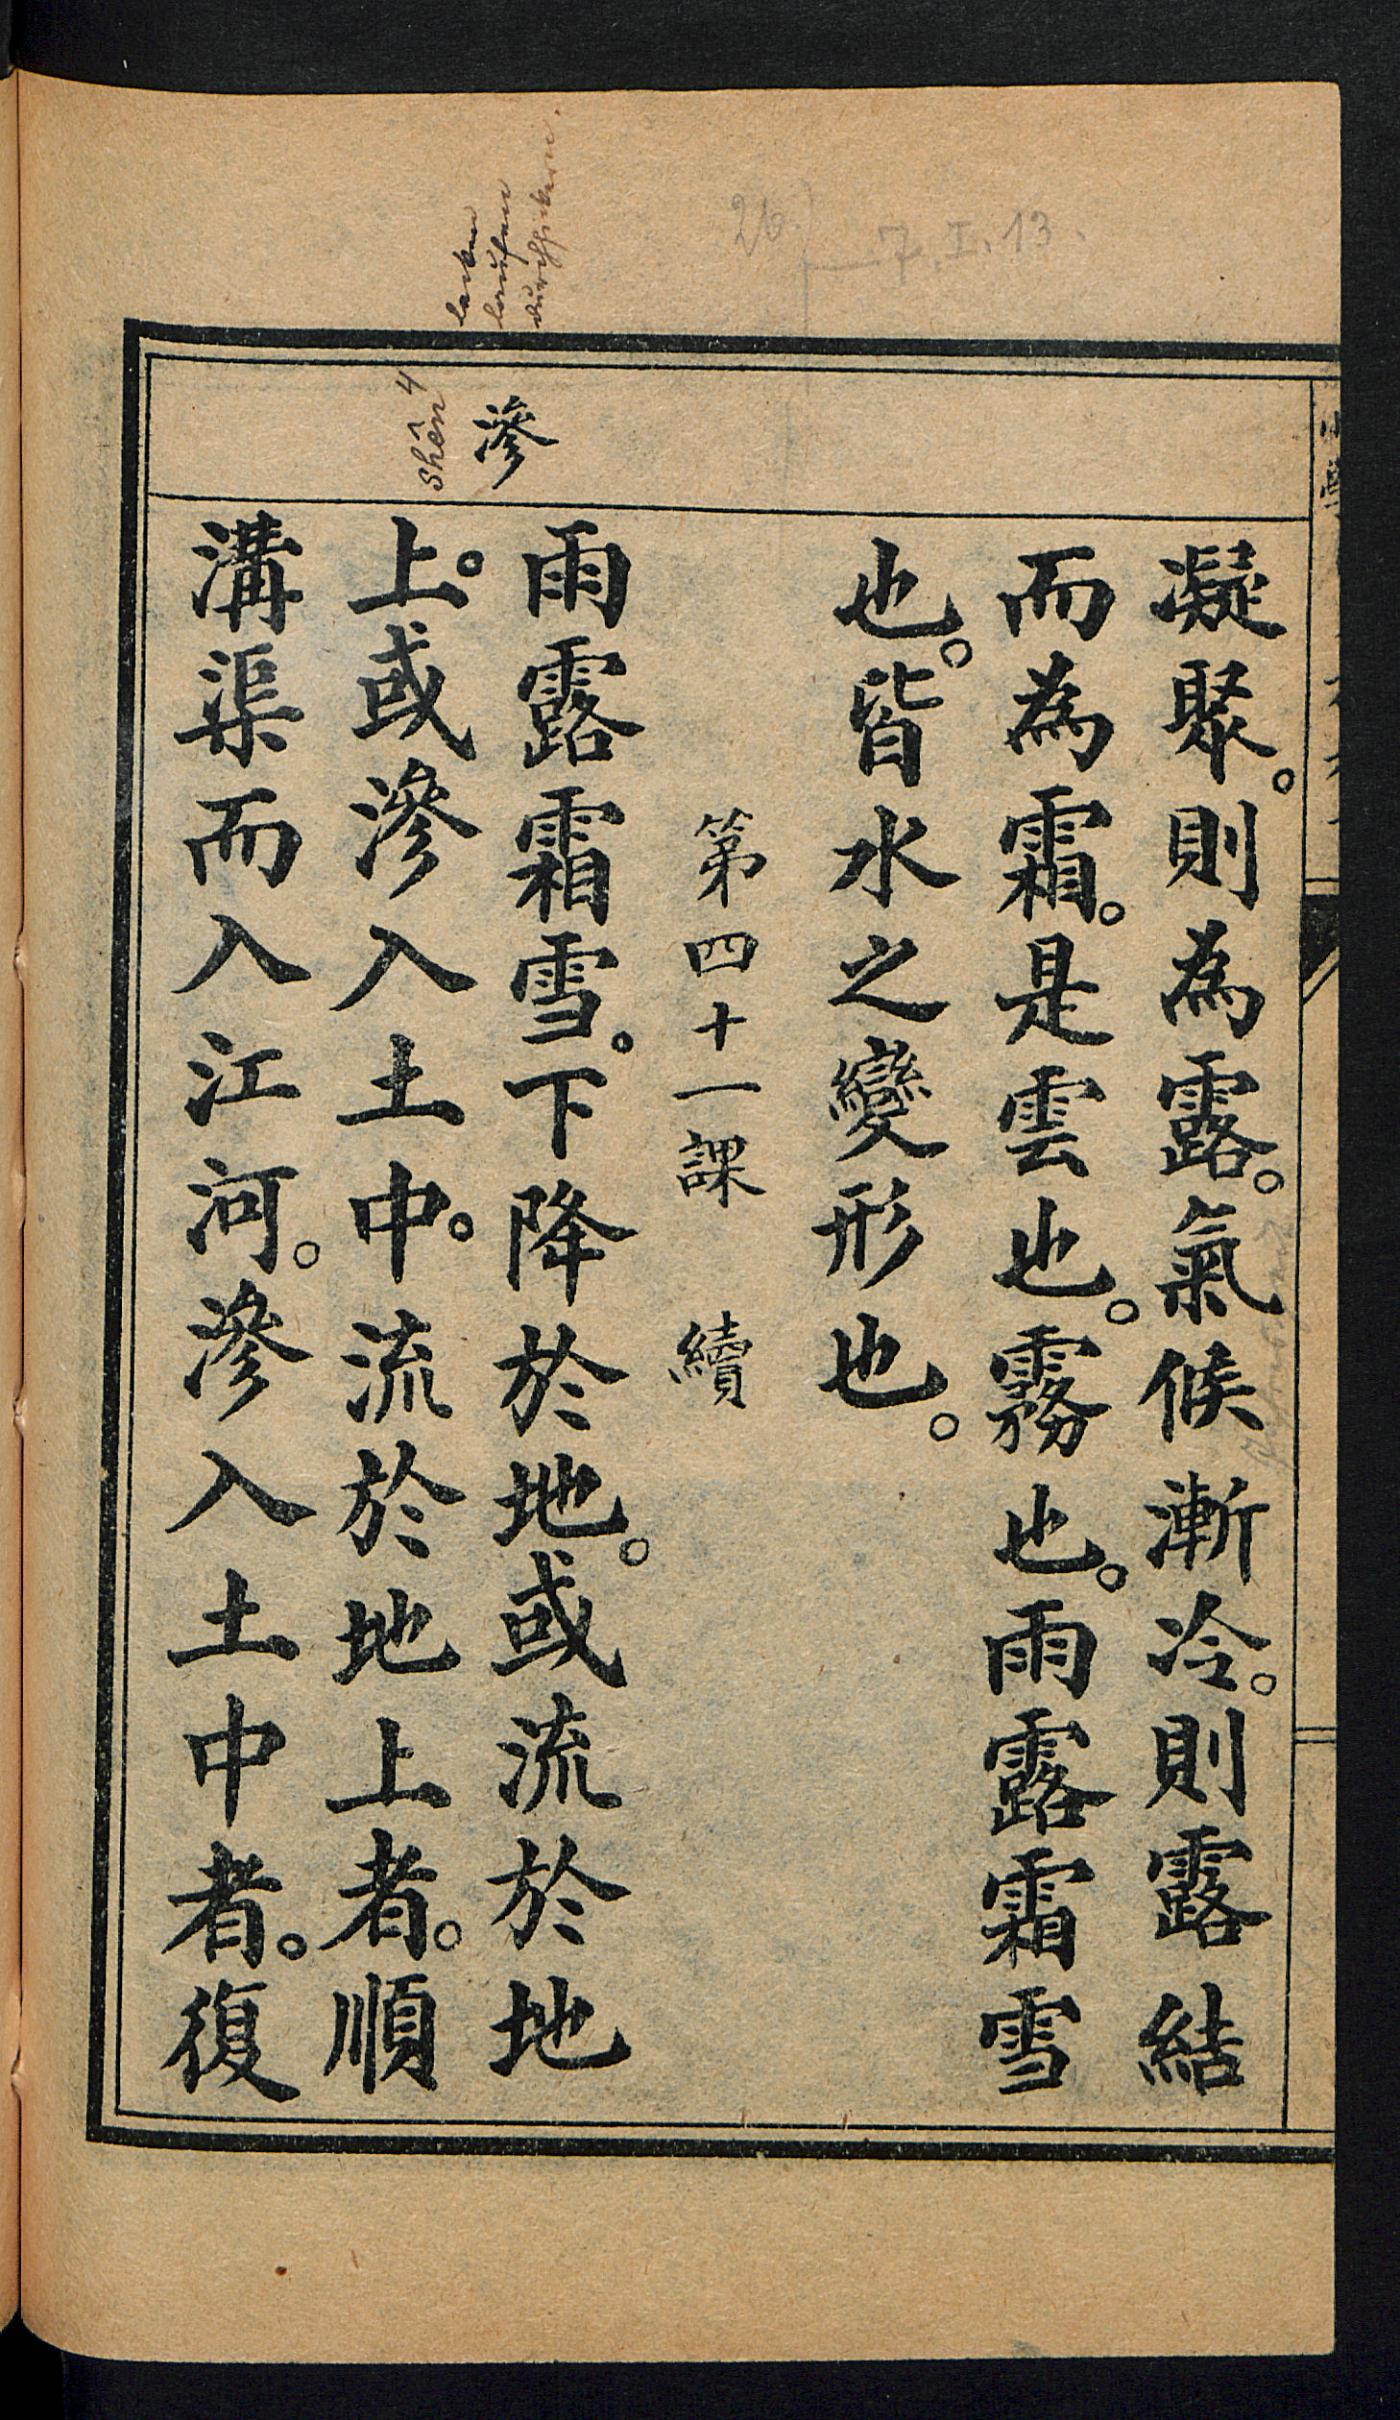 凝聚。則為露。氣候漸冷。則露結
而為霜。是雲也。霧也。雨露霜雪
也。皆水之變形也。
第四十一課 續
滲
shên 4
lecken
laufen
durchsickern.
26. 7. I. 13.
雨露霜雪。下降於地。或流於地
上。或滲入土中。流於地上者。順
溝渠而入江河。滲入土中者。復